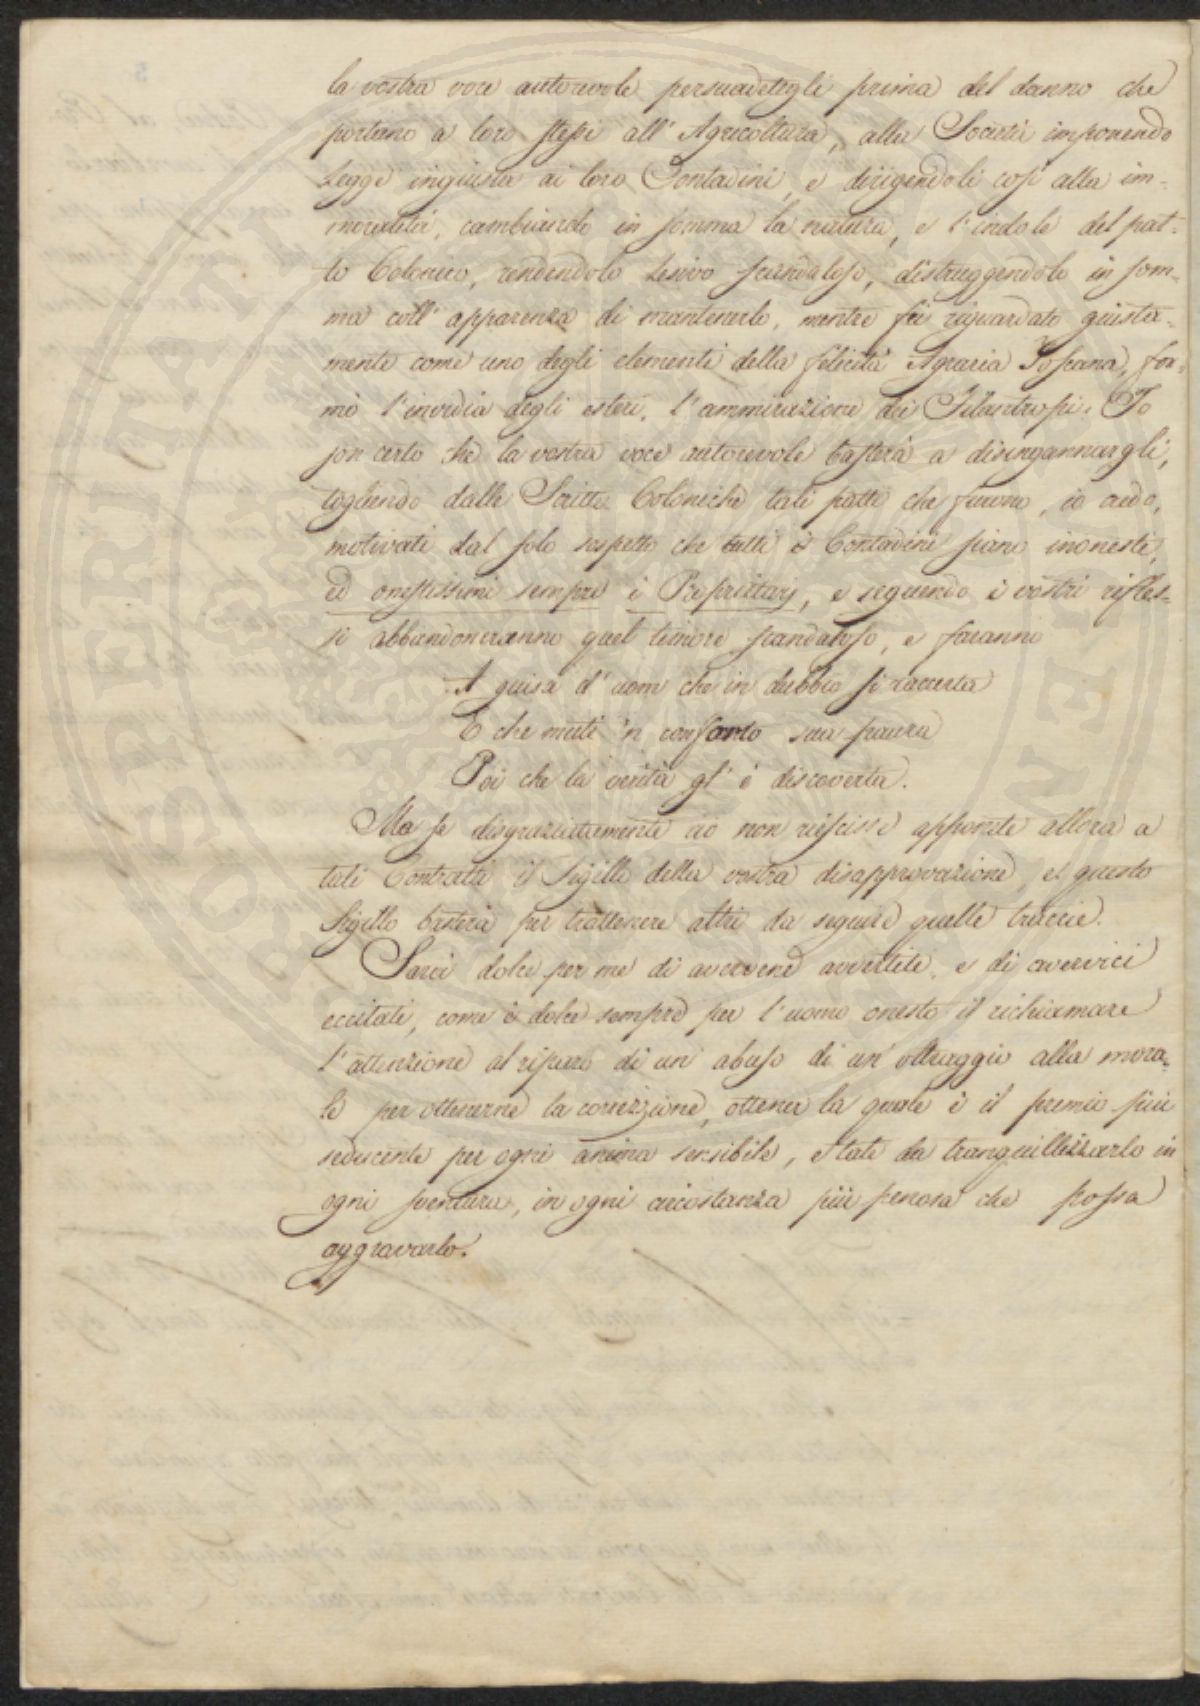 la vostra voce autorevole persuadetegli prima del danno che
portano a loro stessi all'Agricoltura, alla Società imponendo
Legge ingiusta ai loro Contadini, e dirigendoli così alla im-
moralità, cambiando in somma la natura, e l'indole del pat-
to Colonico, rendendolo lesivo scandaloso, distruggendolo in som-
ma coll'apparenza di mantenerlo, mentre fù riguardato giusta-
mente come uno degli elementi della felicità Agraria Toscana, for-
mò l'invidia degli esteri, l'ammirazione dei Filantropi. Io
son certo che la vostra voce autorevole basterà a disingannargli,
togliendo dalle Scritte Coloniche tali patti che furono, io credo,
motivati dal solo sospetto che tutti i Contadini siano inonesti,
ed onestissimi sempre i Proprietarj, e seguendo i vostri rifles-
si abbandoneranno quel tenore scandaloso, e faranno
A guisa d'uom che in dubbio si raccerta
E che muti 'n conforto sua paura
Poi che la verità gl'è discoverta.
Ma se disgraziatamente ciò non riuscisse apponete allora a
tali Contratti il Sigillo della vostra disapprovazione, e questo
Sigillo basterà per trattenere altri da seguire quelle traccie.
Sarà dolce per me di avervene avvertiti, e di avervici
eccitati, come è dolce sempre per l'uomo onesto il richiamare
l'attenzione al riparo di un abuso di un'oltraggio alla mora-
le per ottenerne la correzzione, ottener la quale è il premio più
seducente per ogni anima sensibile, e tale da tranquillizzarlo in
ogni sventura, in ogni circostanza più penosa che possa
aggravarlo.